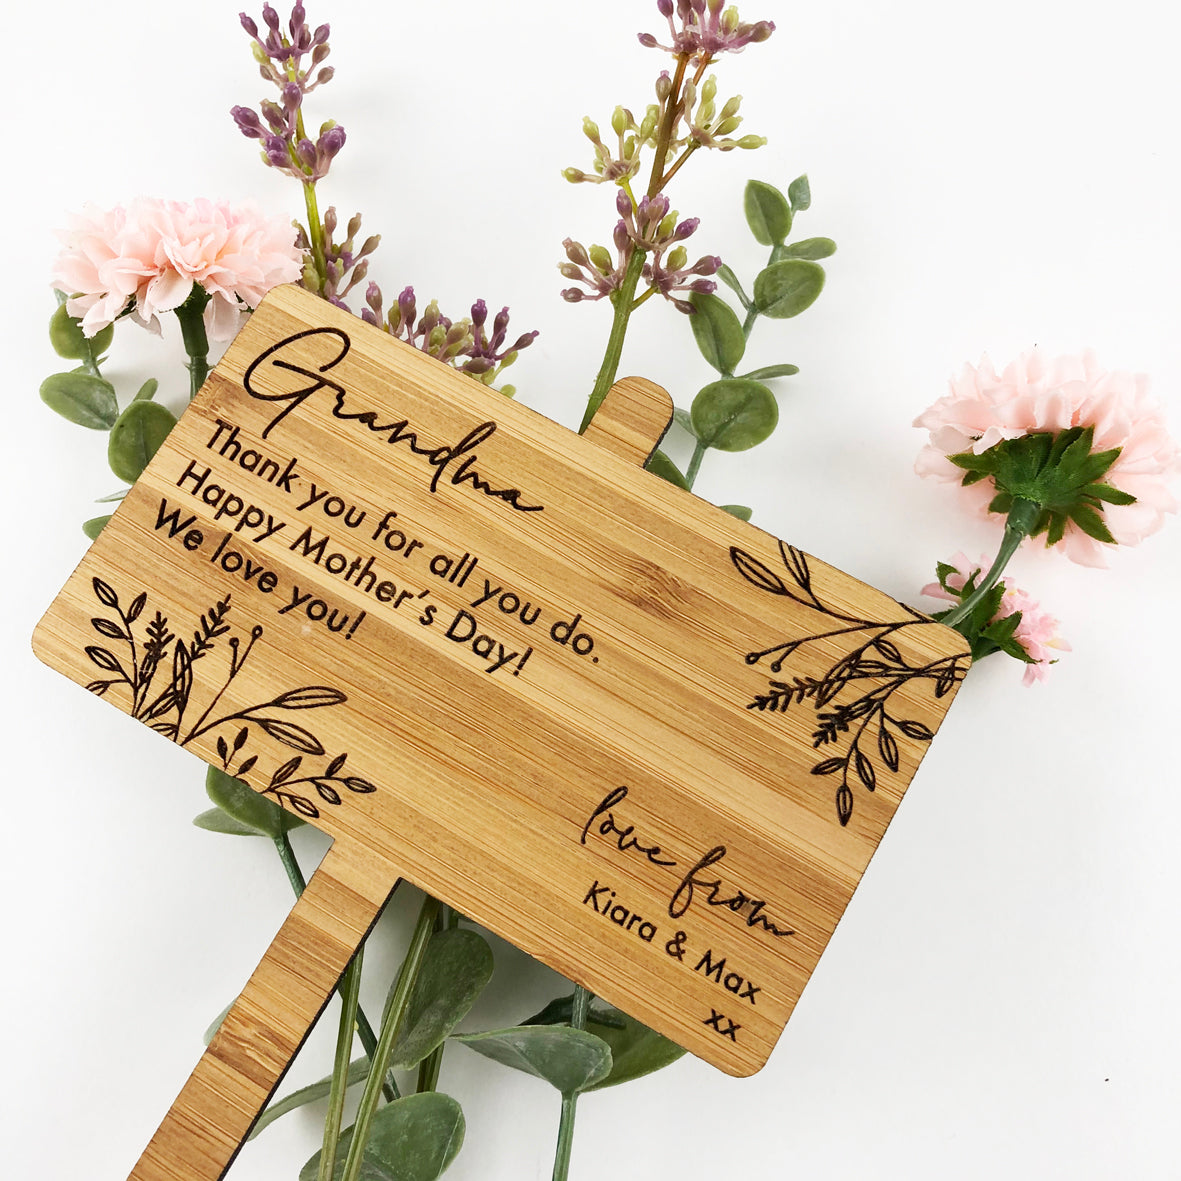 Grandma
Thank you for all you do.
Happy Mother's Day!
We love you!
love from
Kiara & Max
xx